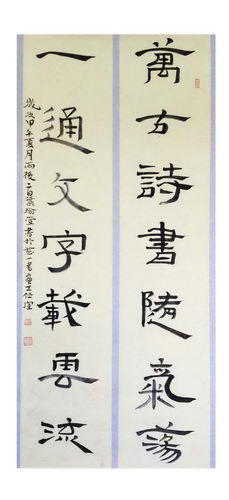 萬古詩書隨氣蕩
一通文字載雲流
歲次甲午夏月雨後